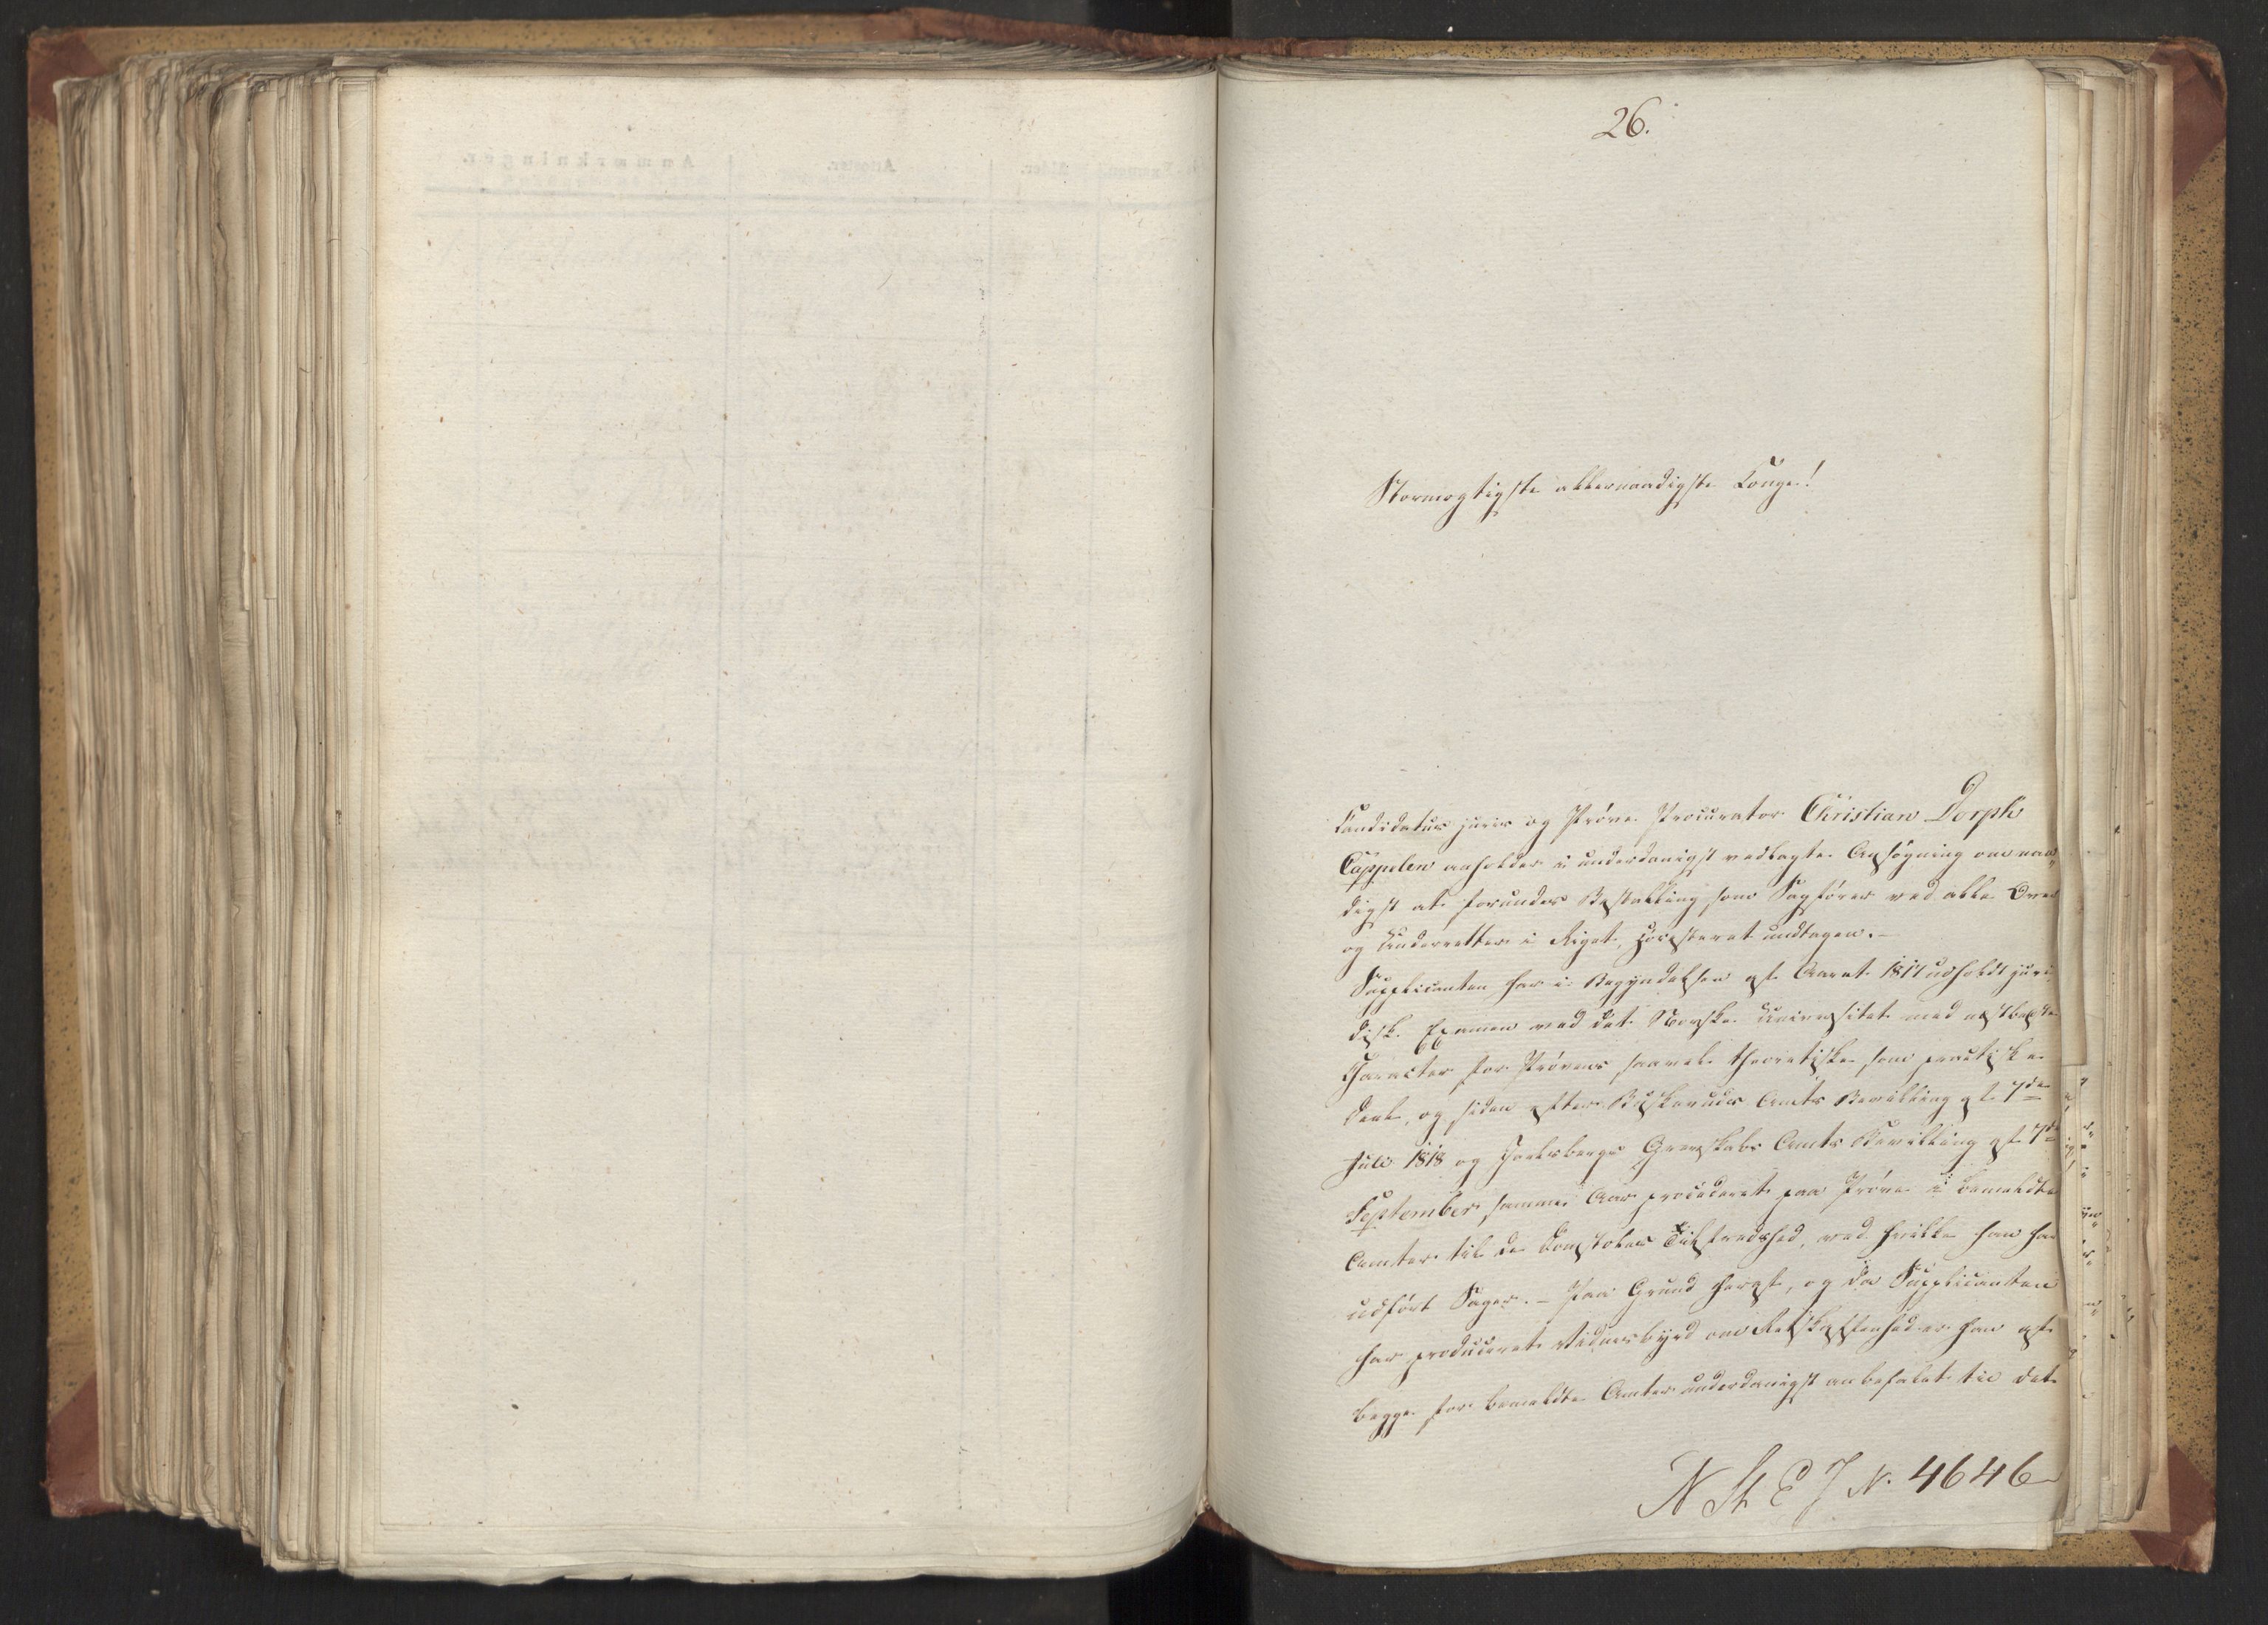 26.
Stormægtigste allernaadigste Konge!
Candidatus juris og Prøve Procurator Christian Dorph
Cappelen anholder i underdanigst vedlagte Ansøgning om naa„
digst at forundes Bestalling som Sagfører ved alle Over
og Underretter i Riget, Høiesteret undtagen.—
Supplicanten har i Begyndelsen af Aaret 1817 udholdt juri„
disk Examen ved det Norske Universitet med næstbedste
Character for Prøvens saavel theoretiske som practiske
Deel, og siden efter Buskeruds Amts Bevilling af 7de
Julii 1818 og Jarlsbergs Grevskabs Amts Bevilling af 7de
September samme Aar procederet paa Prøve i bemeldte
Amter til de Domstoles Tilfredshed, ved hvilke han har
udført Sager.— Paa Grund heraf, og da Supplicanten
har produceret Vidnesbyrd om Retskaffenhed er han af
begge for bemeldte Amter underdanigst anbefalet til det
N St E J N. 4646